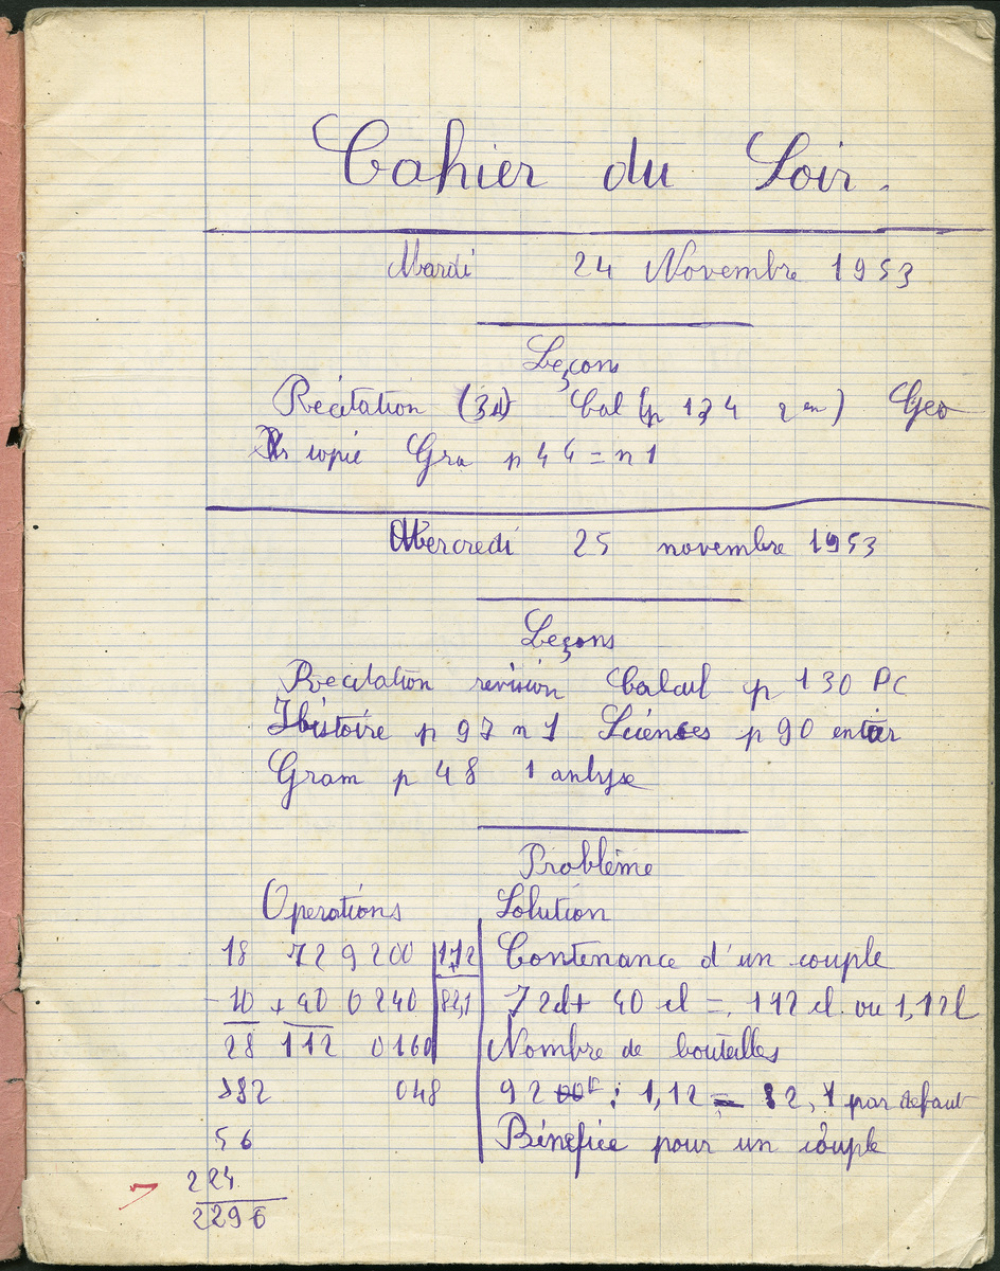 Cahier du Soir.
Mardi 24 Novembre 1953
Leçons
Récitation Cal (p 134 2 en) Geo
copié Gra p 44 = n 1
Mercredi 25 novembre 1953
Leçons
Recitation revision Calcul p 130 PC
Histoire p 97 n 1 Sciences p 90 entier
Gram p 48 1 anlyse
Problème
Operations Solution
18 72 9200 1,12 Contenance d'un couple
- 10 + 40 0240 82,1 72cl + 40 cl = 112 cl ou 1,12l
28 112 0160 Nombre de bouteilles
048 92 : 1,12 = 82,1 par defaut
56 Bénéfice pour un couple
224
2296